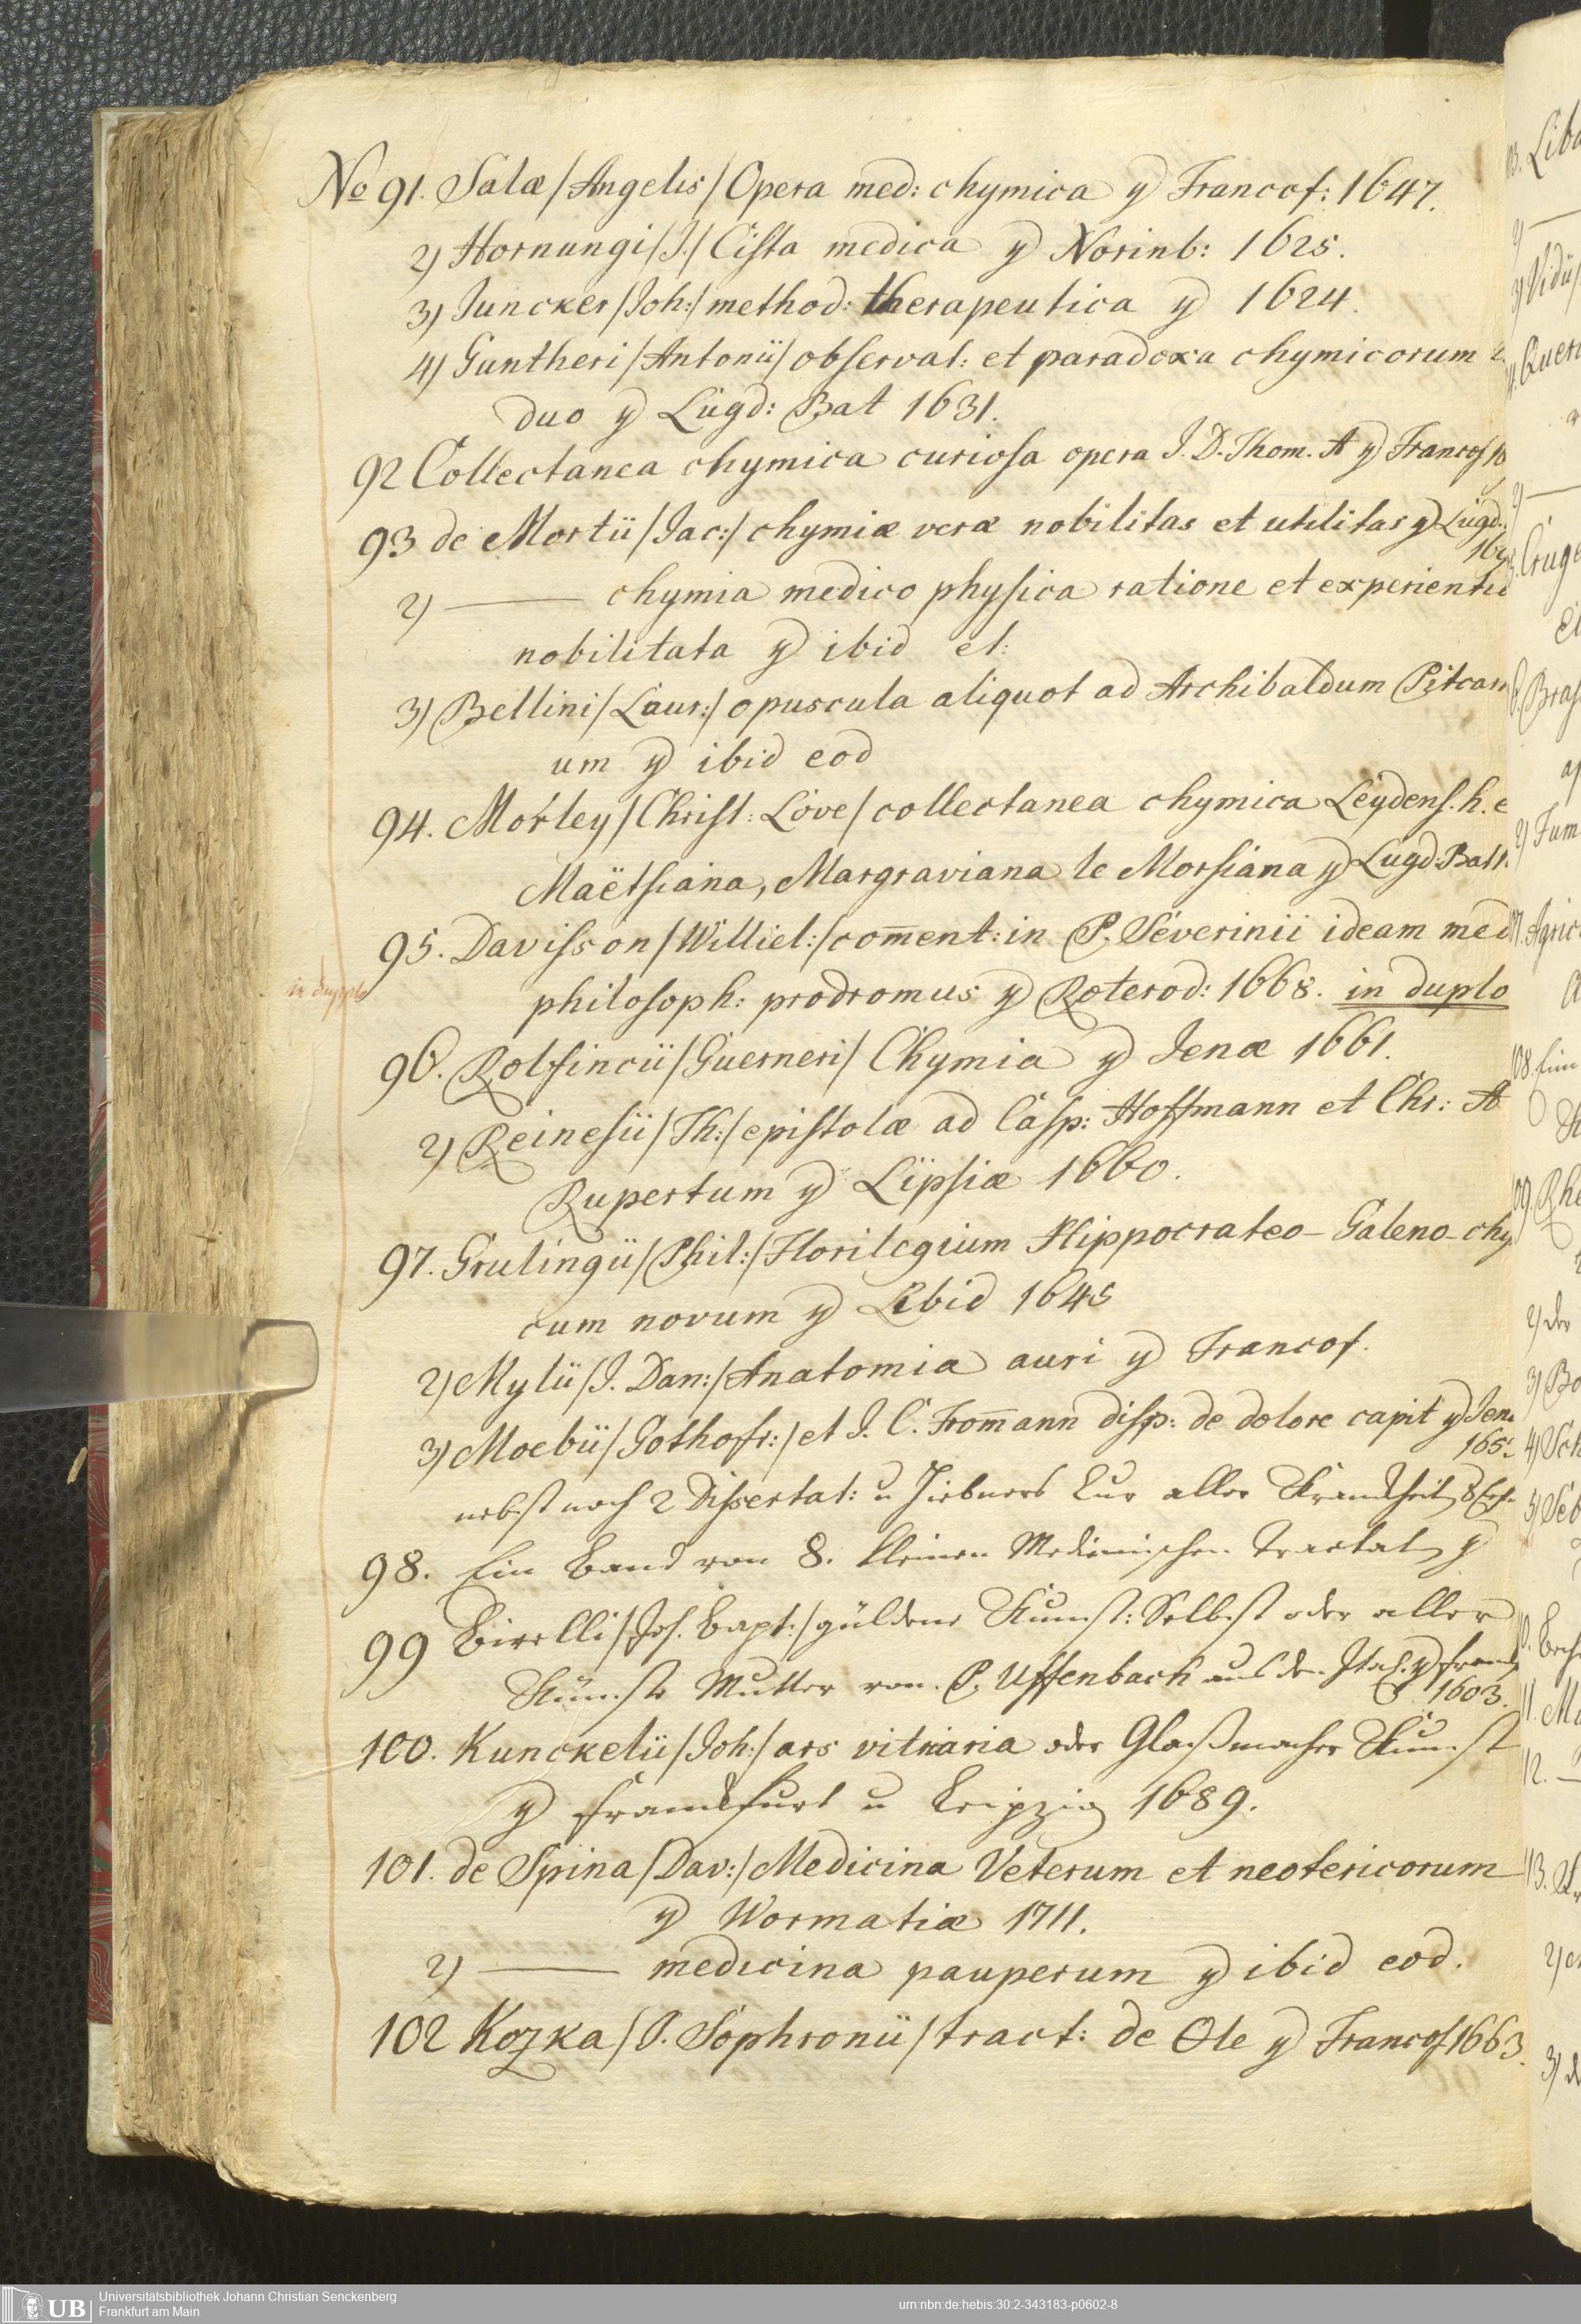 No 91. Salæ /Angelis/ Opera med: chymica y Francof: 1647.
2) Hornungi /J./ Cista medica y Norinb: 1625.
3) Juncker /Joh:/ method: therapeutica y 1624.
4) Guntheri /Antonii/ observat: et paradoxa chymicorum
duo y Lugd: Bat 1631.
92 Collectanea chymica curiosa opera J. D. Thom. A y Francof
93 de Mortii /Jac:/ chymiæ veræ nobilitas et utilitas y Lugd:
2) ——— chymia medico physica ratione et experientia
nobilitata y ibid et:
3) Bellini /Laur:/ opuscula aliquot ad Archibaldum Pitcarn
um y ibid eod
94. Morley /Christ: Löve/ collectanea chymica Leydens. h. e
Maëtsiana, Margraviana le Morsiana y Lugd: Bat
95. Davisson /Williel:/ coment: in P. Severinii ideam med
in duplo
philosoph: prodromus y Roterod: 1668. in duplo
96. Rolfincii /Guerneri/ Chymia y Jenæ 1661.
2) Reinesii /Th:/ epistolæ ad Casp: Hoffmann et Chr: A
Rupertum y Lipsiæ 1660.
97. Grulingii /Phil:/ Florilegium Hippocrateo-Galeno-chy
cum novum y Libid 1645
2) Mylii /J. Dan:/ Anatomia auri y Francof.
3) Moebii /Gothofr:/ et J. C. Fromann disp: de dolore capit y Jen
165
nebst noch 2 Dissertat: u Hiebners Cur aller Krankheit
98. Ein Band von 8. kleinen Medicinischen Tractat y
99 Birelli /Joh. Bapt:/ güldene Kunst: Selbst oder aller
Künste Mutter von P. Uffenbach aus dem Ital. y Frankf
1603.
100. Kunckelii /Joh:/ ars vitriaria oder Glaßmacher Kunst
y Franckfurt u Leipzig 1689.
101. de Spina /Dav:/ Medicina Veterum et neotericorum
y Wormatiæ 1711.
2) ——— medicina pauperum y ibid eod.
102 Kozka /P. Sophronii/ tract: de Ole y Francof 1663.
Universitätsbibliothek Johann Christian Senckenberg
Frankfurt am Main
UB
urn:nbn:de:hebis:30:2-343183-p0602-8